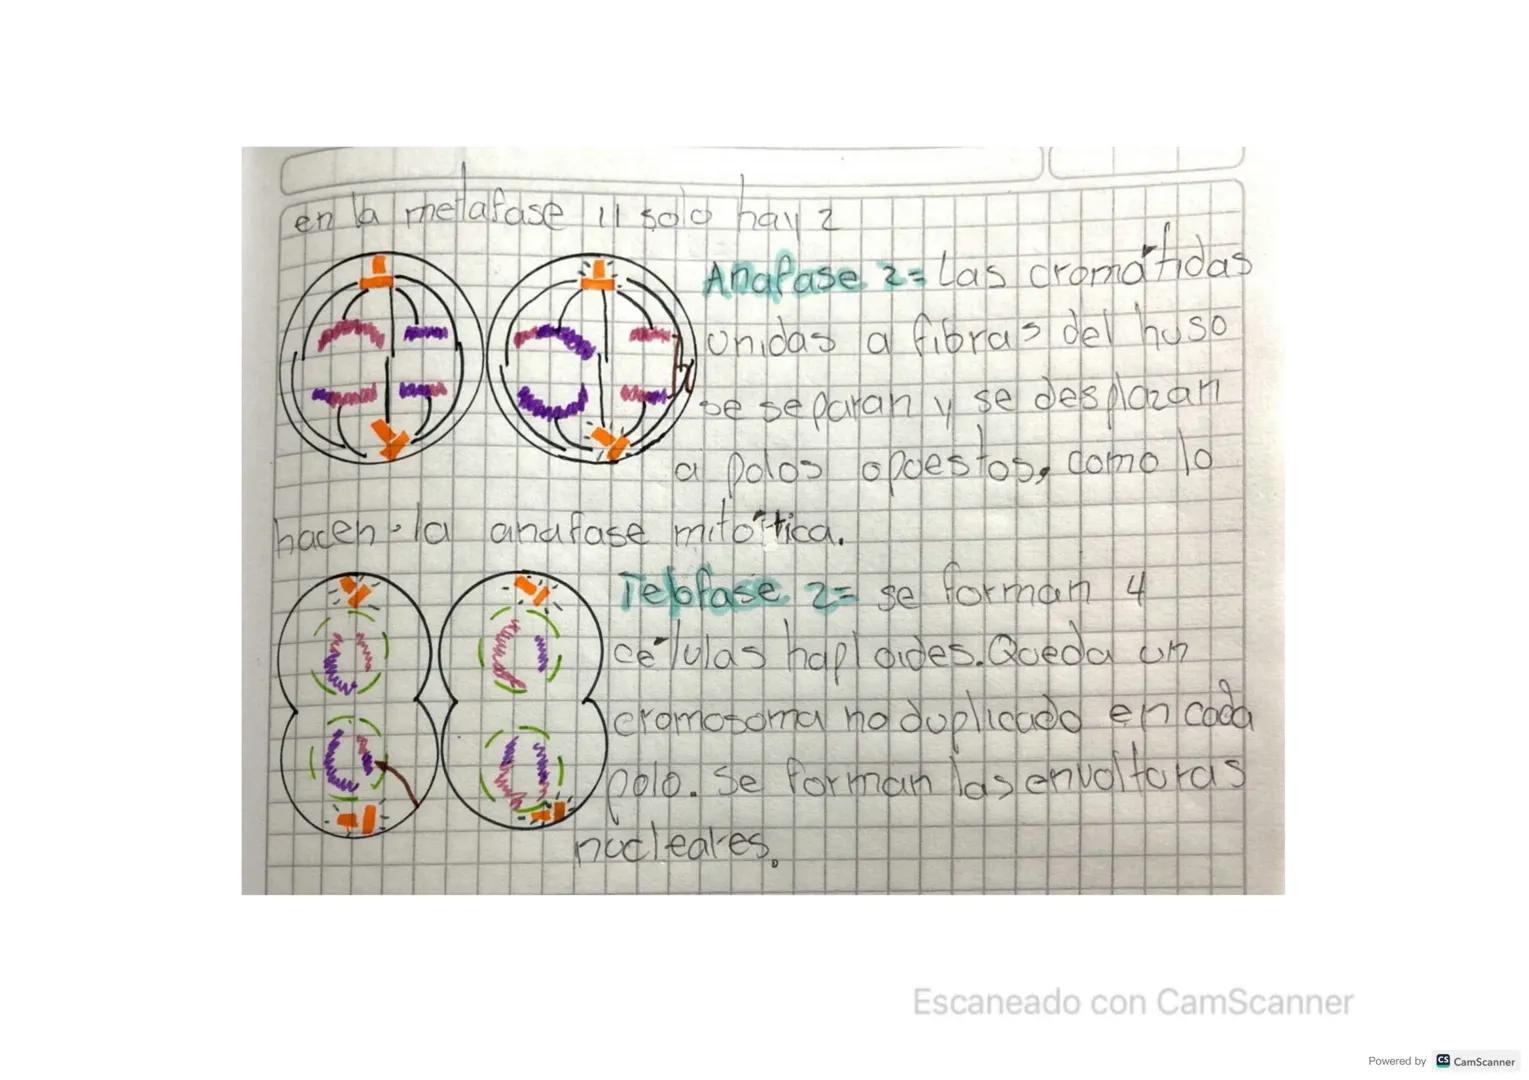 en la metafase II solo hay 2
Anafase 2= Las cromátidas
unidas a fibras del huso
se separan y se desplazan
a polos opuestos, como lo
hacen la anafase mitótica.
Telofase 2= se forman 4
células haploides. Queda un
cromosoma no duplicado en cada
polo. Se forman las envolturas
nucleares.
Escaneado con CamScanner
Powered by CS CamScanner